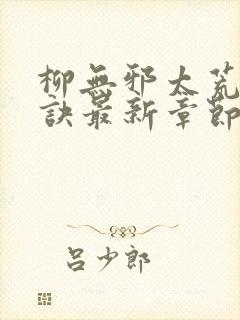 柳無邪太荒
訣最新章節
呂少郎